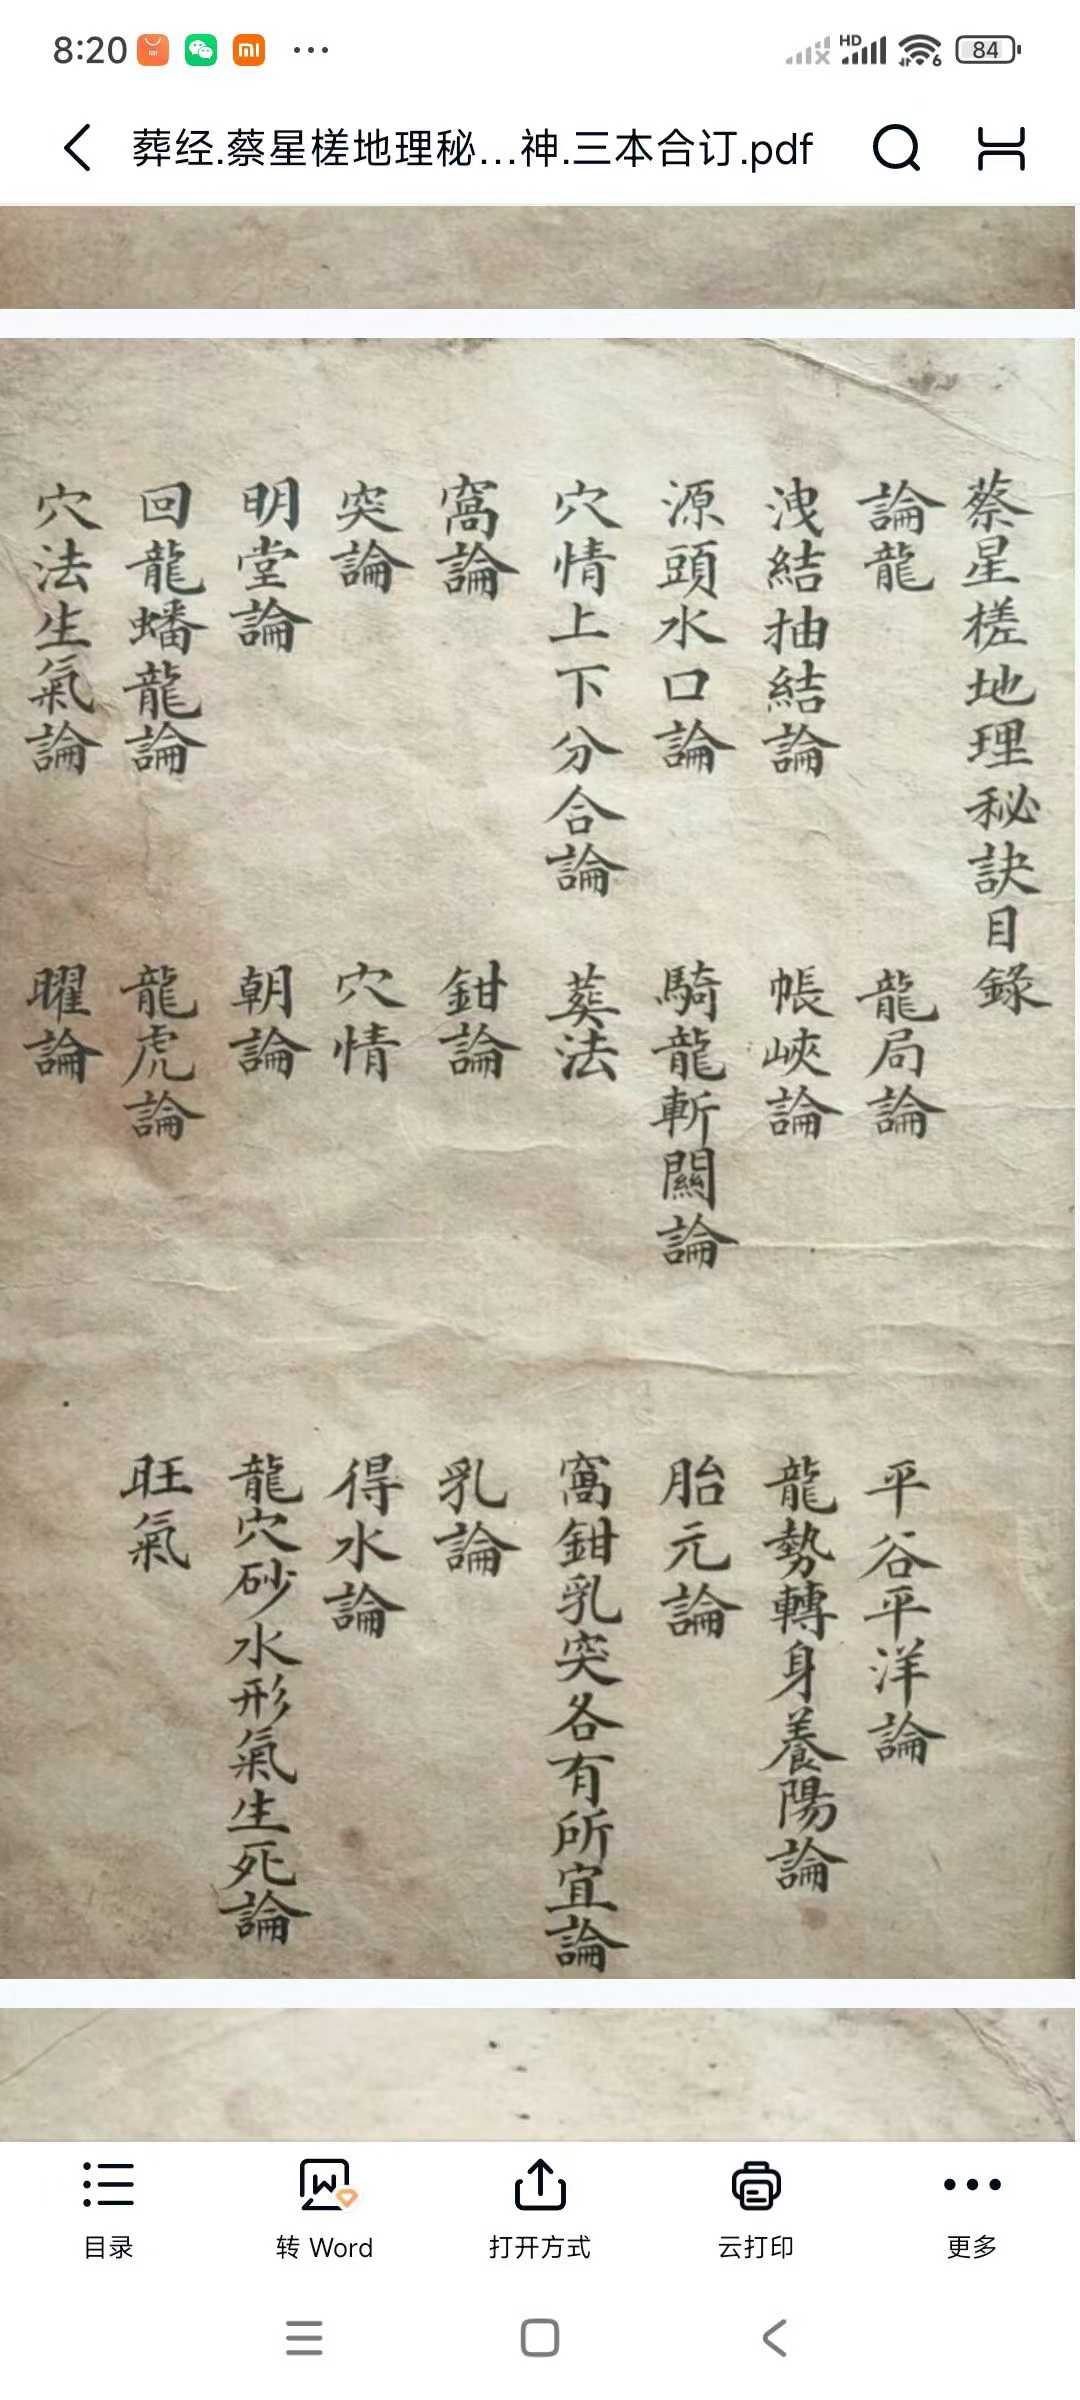 8:20
HD
6
84
葬经.蔡星槎地理秘...神.三本合订.pdf
蔡星槎地理秘訣目錄
論龍 龍局論 平谷平洋論
洩結抽結論 帳峽論 龍勢轉身養陽論
源頭水口論 騎龍斬關論 胎元論
穴情上下分合論 葬法 窩鉗乳突各有所宜論
窩論 鉗論 乳論
突論 穴情 得水論
明堂論 朝論 龍穴砂水形氣生死論
回龍蟠龍論 龍虎論 旺氣
穴法生氣論 曜論
目录
转 Word
打开方式
云打印
更多